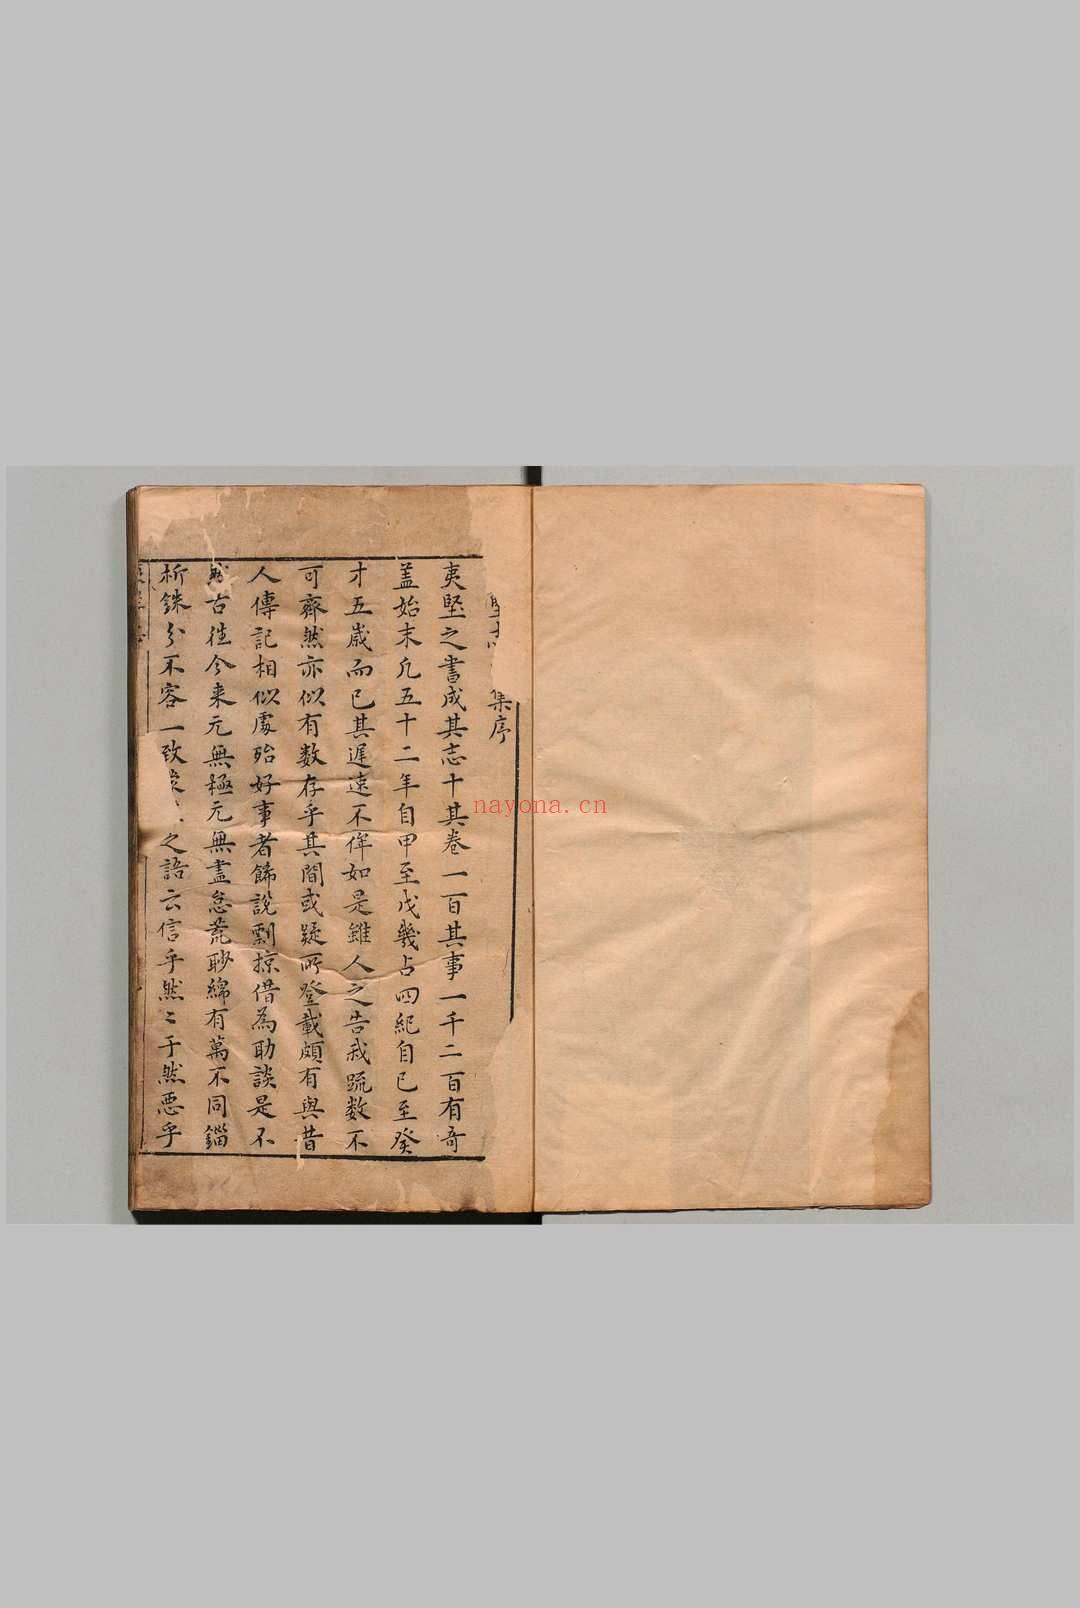 堅志 集序
夷堅之書成其志十其卷一百其事一千二百有奇
盖始末凡五十二年自甲至戊幾占四紀自已至癸
才五歲而已其遲速不侔如是雖人之告我踈数不
可齊然亦似有数存乎其間或疑所登載頗有與昔
人傳記相似處殆好事者飾說剽掠借為助談是不
然古往今来元無極元無盡荒忽眇綿有萬不同錙
析銖分不容一致 之語云信乎然ニ于然惡乎
nayona.cn